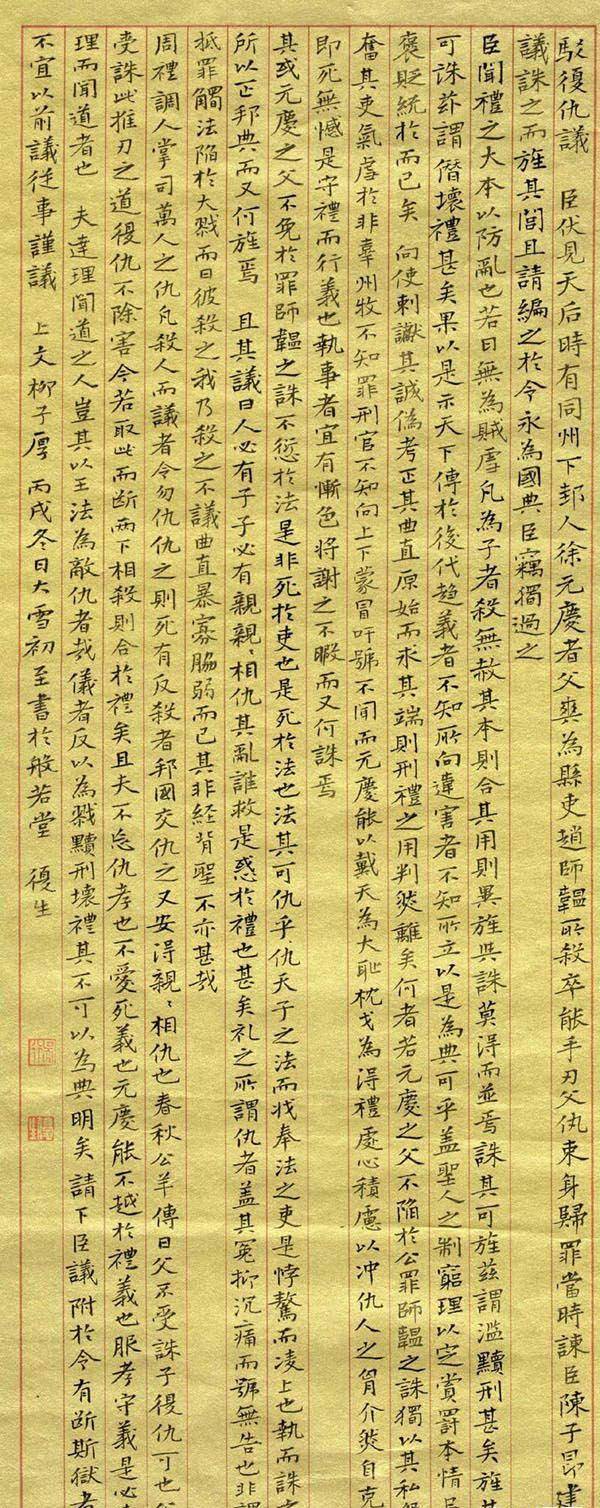 駁復仇議　臣伏見天后時有同州下邽人徐元慶者父爽為縣吏趙師韞所殺卒能手刃父仇束身歸罪當時諫臣陳子昂建
議誅之而旌其閭且請編之於令永為國典臣竊獨過之
臣聞禮之大本以防亂也若曰無為賊虐凡為子者殺無赦其本則合其用則異旌與誅莫得而並焉誅其可旌茲謂濫黷刑甚矣旌其
可誅茲謂僭壞禮甚矣果以是示天下傳於後代趨義者不知所向違害者不知所立以是為典可乎蓋聖人之制窮理以定賞罰本情以
褒貶統於而已矣　向使刺讞其誠偽考正其曲直原始而求其端則刑禮之用判然離矣何者若元慶之父不陷於公罪師韞之誅獨以其私
奮其吏氣虐於非辜州牧不知罪刑官不知向上下蒙冒吁號不聞而元慶能以戴天為大恥枕戈為得禮處心積慮以沖仇人之胸介然自克
即死無憾是守禮而行義也執事者宜有慚色將謝之不暇而又何誅焉
其或元慶之父不免於罪師韞之誅不愆於法是非死於吏也是死於法也法其可仇乎仇天子之法而戕奉法之吏是悖驁而凌上也執而誅之
所以正邦典而又何旌焉　且其議曰人必有子子必有親親〻相仇其亂誰救是惑於禮也甚矣礼之所謂仇者蓋其冤抑沉痛而號無告也非謂
抵罪觸法陷於大戮而曰彼殺之我乃殺之不議曲直暴寡脇弱而已其非経背聖不亦甚哉
周禮調人掌司萬人之仇凡殺人而議者令勿仇仇之則死有反殺者邦國交仇之又安得親〻相仇也春秋公羊傳曰父不受誅子復仇可也父
受誅此推刃之道復仇不除害今若取此而斷兩下相殺則合於禮矣且夫不忘仇孝也不愛死義也元慶能不越於禮義也服孝守義是必
理而聞道者也　夫達理聞道之人豈其以王法為敵仇者哉儀者反以為戮黷刑壞禮其不可以為典明矣請下臣議附於令有斷斯獄者
不宜以前議從事謹議　上文柳子厚　丙戌冬日大雪初至書於般若堂　復生